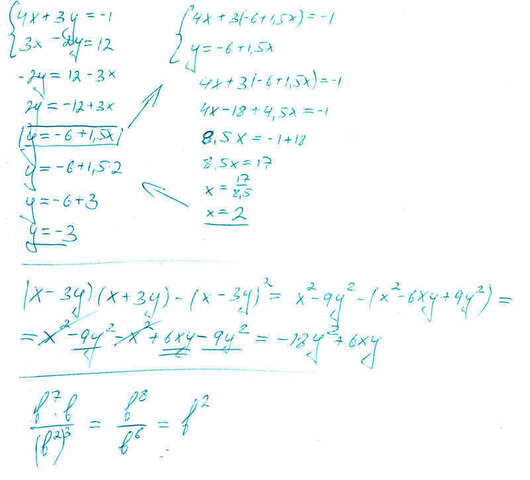 4x + 3y = -1
3x - 2y = 12
-2y = 12 - 3x
2y = -12 + 3x
y = -6 + 1,5x
y = -6 + 1,5·2
y = -6 + 3
y = -3
4x + 3(-6 + 1,5x) = -1
y = -6 + 1,5x
4x + 3(-6 + 1,5x) = -1
4x - 18 + 4,5x = -1
8,5x = -1 + 18
8,5x = 17
x = 17/8,5
x = 2
(x - 3y)(x + 3y) - (x - 3y)² = x² - 9y² - (x² - 6xy + 9y²) =
= x² - 9y² - x² + 6xy - 9y² = -18y² + 6xy
b⁷·b/(b²)³ = b⁸/b⁶ = b²